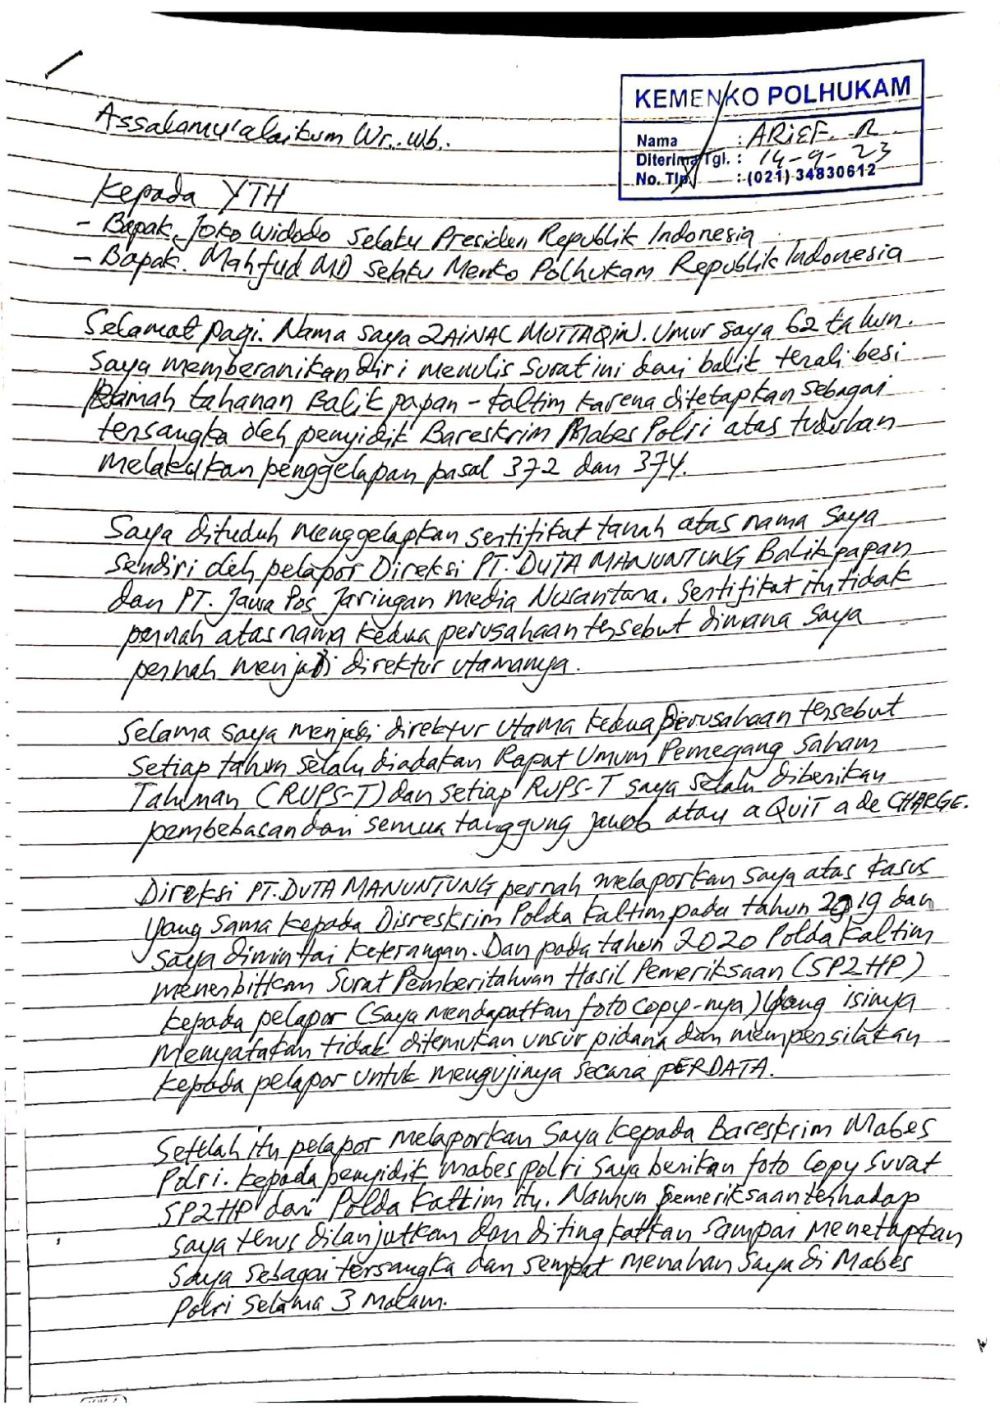 KEMENKO POLHUKAM
Nama : ARIEF. R
Diterima Tgl. : 14-9-23
No. Tlp. : (021) 34830612
Assalamu'alaikum Wr. Wb.
Kepada YTH
- Bapak Joko Widodo selaku Presiden Republik Indonesia
- Bapak. Mahfud MD selaku Menko Polhukam Republik Indonesia
Selamat pagi. Nama saya ZAINAL MUTTAQIN. Umur saya 62 tahun.
Saya memberanikan diri menulis surat ini dari balik terali besi
Rumah tahanan Balikpapan - Kaltim karena ditetapkan sebagai
tersangka oleh penyidik Bareskrim Mabes Polri atas tuduhan
melakukan penggelapan pasal 372 dan 374.
Saya dituduh menggelapkan sertifikat tanah atas nama saya
sendiri oleh pelapor Direksi PT. DUTA MANUNTUNG Balikpapan
dan PT. Jawa Pos Jaringan Media Nusantara. Sertifikat itu tidak
pernah atas nama kedua perusahaan tersebut dimana saya
pernah menjadi direktur utamanya.
Selama saya menjadi direktur utama kedua perusahaan tersebut
setiap tahun selalu diadakan Rapat Umum Pemegang Saham
Tahunan (RUPS-T) dan setiap RUPS-T saya selalu diberikan
pembebasan dari semua tanggung jawab atau aQUIT a de CHARGE.
Direksi PT. DUTA MANUNTUNG pernah melaporkan saya atas kasus
yang sama kepada Disreskrim Polda Kaltim pada tahun 2019 dan
saya dimintai keterangan. Dan pada tahun 2020 Polda Kaltim
menerbitkan Surat Pemberitahuan Hasil Pemeriksaan (SP2HP)
kepada pelapor (saya mendapatkan foto copy-nya) yang isinya
menyatakan tidak ditemukan unsur pidana dan mempersilakan
kepada pelapor untuk mengujinya secara PERDATA.
Setelah itu pelapor melaporkan saya kepada Bareskrim Mabes
Polri. Kepada penyidik mabes polri saya berikan foto copy surat
SP2HP dari Polda Kaltim itu. Namun pemeriksaan terhadap
saya terus dilanjutkan dan ditingkatkan sampai menetapkan
saya sebagai tersangka dan sempat menahan saya di Mabes
Polri selama 3 malam.